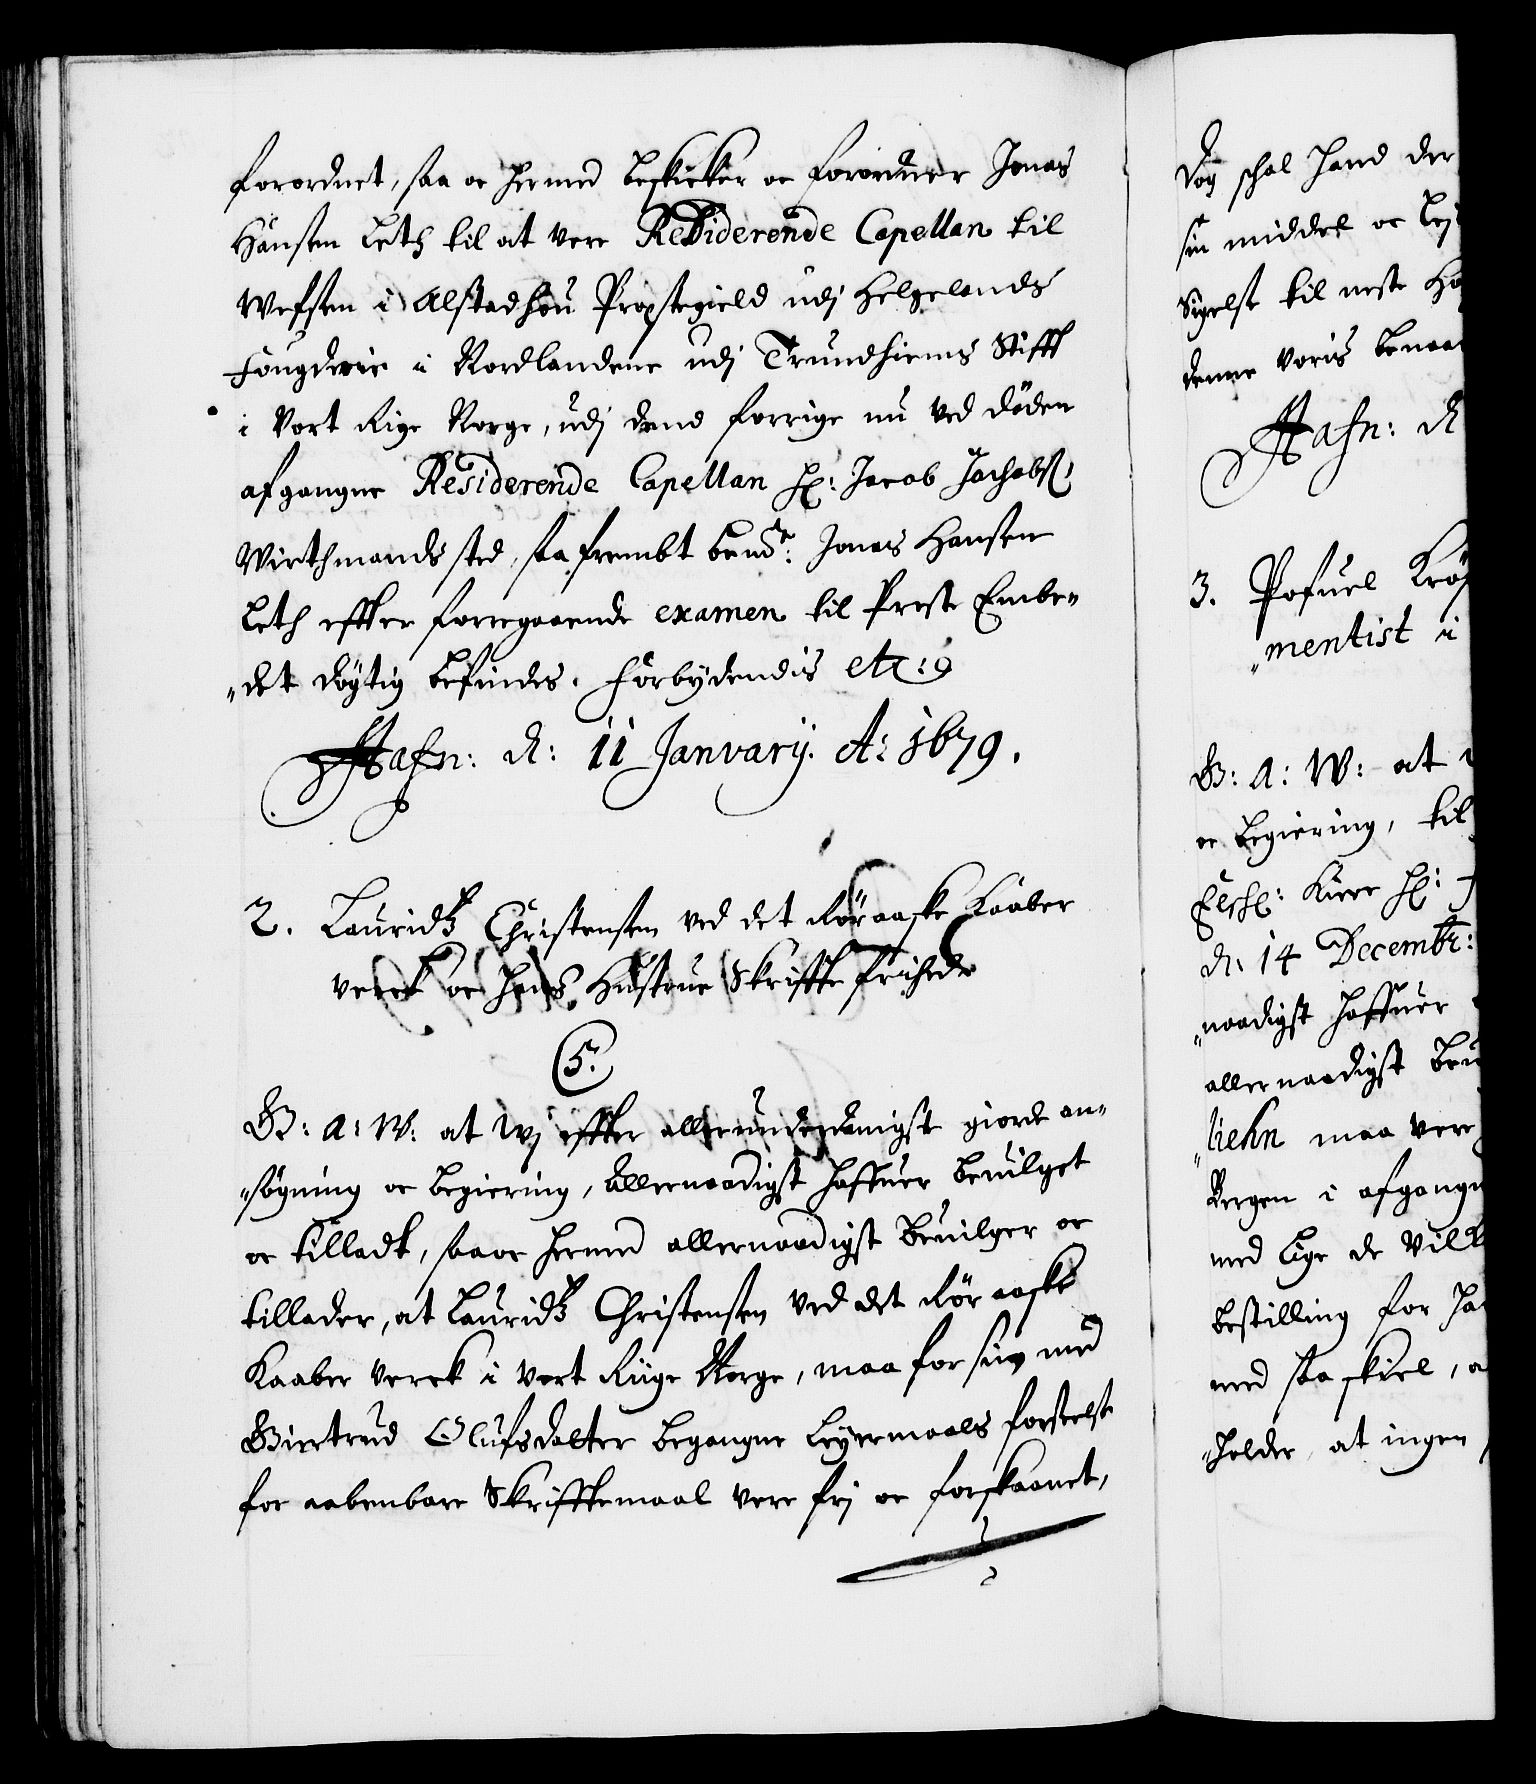 forordnet, saa oc hermed beskicker oc forordner Jonas
Hansen Leth til at vere Residerende Capellan til
Wefsen i Alstadhou Prestegield udj Helgelands
Fougderie i Nordlandene udj Trundhiems Stifft
i Vort Rige Norge, udj dend forrige nu ved döden
afgangne Residerende Capellan H: Jacob Jachobs:
Wirthmands sted, saa frembt bemte: Jonas Hansen
Leth effter forregaaende examen til Preste Embe„
„det döytig befindes. Forbydendis etc:
Hafn: d: 11 Janvarij. A: 1679.
2. Lauridtz Christensen ved det Röraaske Kaaber
verck oc Hans Hustrue Skriffte frihed
(5.)
G: A: W: at Wj effter allerunderdanigst giorde an„
„søgning oc begiering, allernaadigst haffuer beuilget
oc tilladt, saa oc hermed allernaadigst beuilger oc
tillader, at Lauridtz Christensen ved det Röraaske
Kaaber verck i vort Riige Norge, maa for sin med
Giertrud Olufsdatter begangne Leyermaals forseelse
for aabenbare Skrifftemaal vere frj oc forskaanet,
Dog schal hand der
sin middel oc Lej
Sigelse til neste Ho
denne voris benaa
Hafn: d
3. Pofuel Krö
„mentist i
G: A: W: at
oc begiering, til
Elsh: Kiere H:
d: 14 Decembr:
„naadigst haffuer
allernaadigst beu
„liehn maa vere
Bergen i afgangn
med Lige de Vilk
bestilling for ha
med saa skiel, a
„holder, at ingen